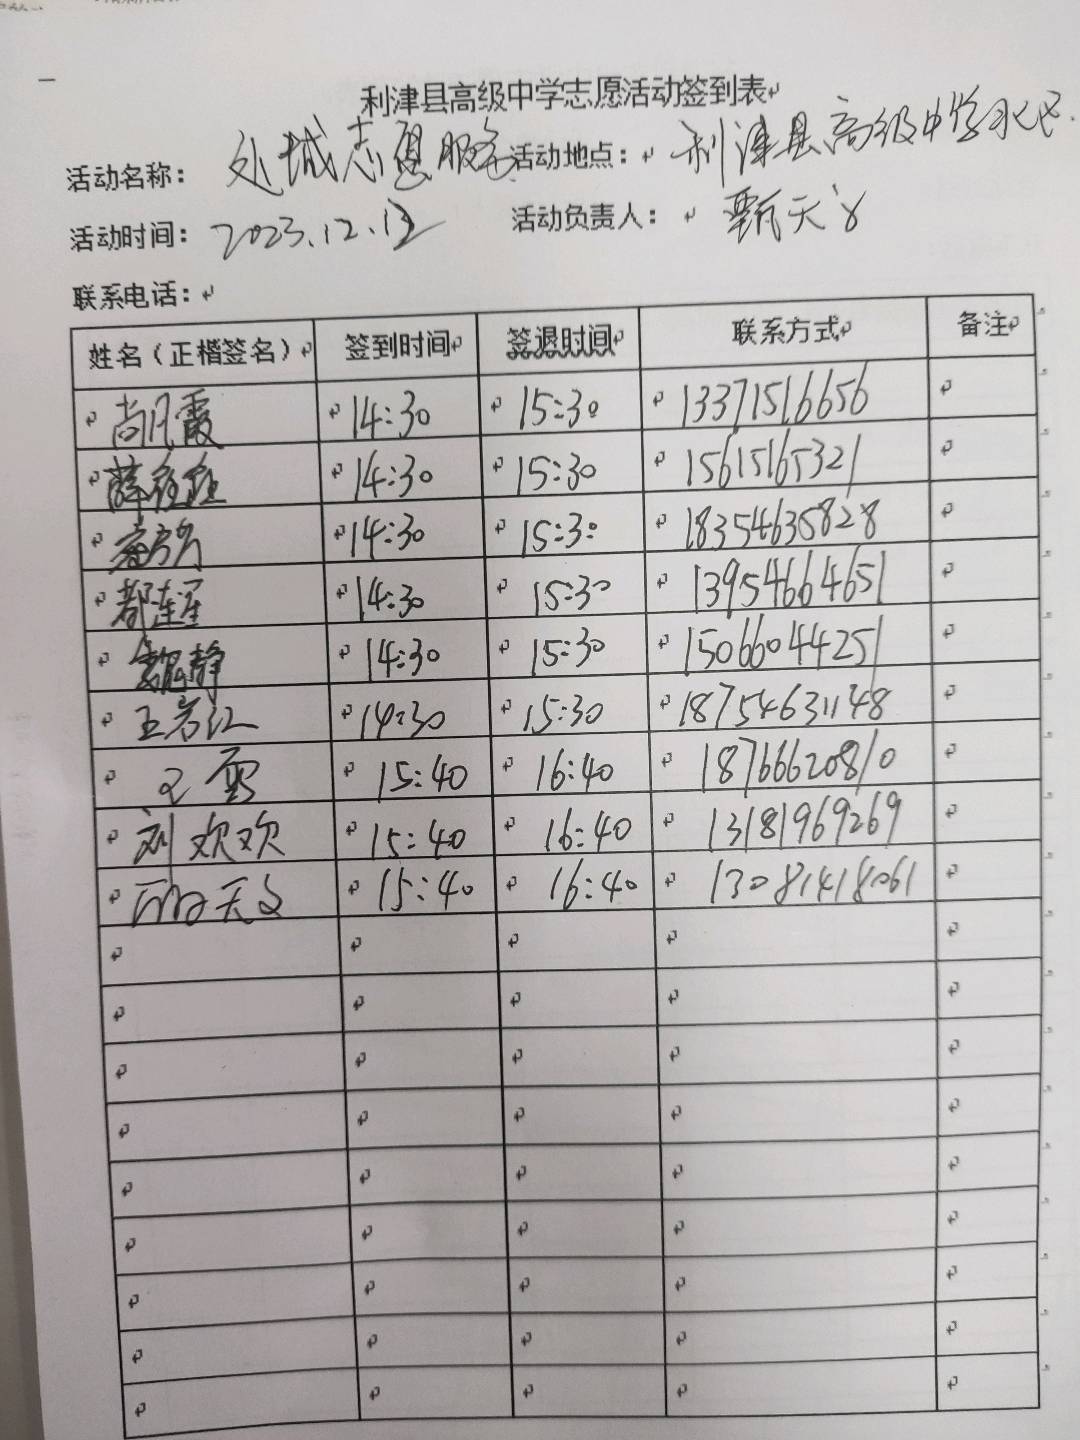 利津县高级中学志愿活动签到表
活动名称： 处城志愿服务 活动地点： 利津县高级中学北区.
活动时间： 2023.12.12 活动负责人： 甄天
联系电话：
姓名（正楷签名） 签到时间 签退时间 联系方式 备注
尚凡霞 14:30 15:30 13371516656
薛 14:30 15:30 15615165321
14:30 15:30 18354635828
都连星 14:30 15:30 13954664651
魏静 14:30 15:30 15066044251
王 14:30 15:30 18754631148
雪 15:40 16:40 18766620810
刘欢欢 15:40 16:40 13181969269
天文 15:40 16:40 13081418061